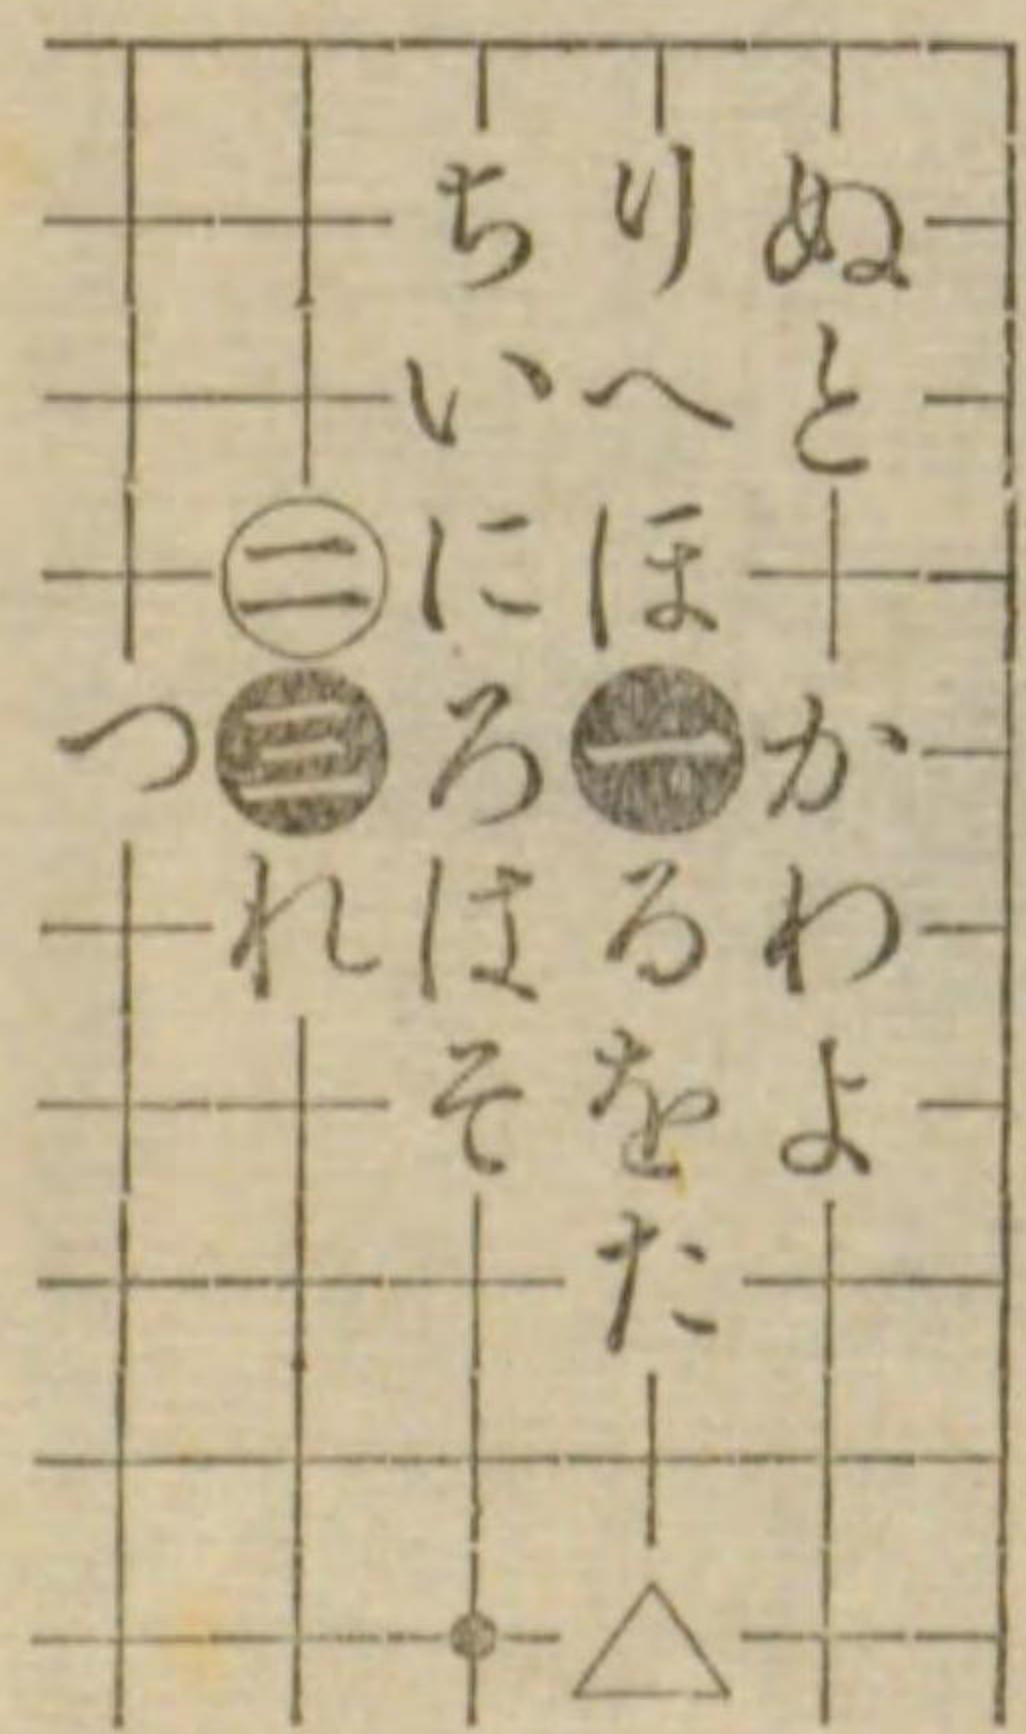 ぬとかわよ
りへほ一るをた
ちいにろはそ
二三れ
つ